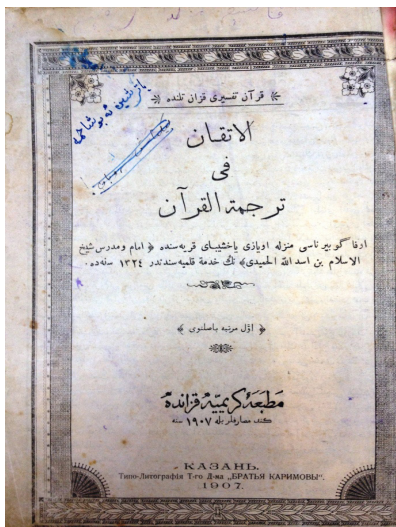 قرآن تفسيرى قزان تلنده
الاتقان
فى
ترجمة القرآن
اوفا گوبيرناسى منزله اويازى ياخشيباى قريه سنده ﴿ امام ومدرس شيخ
الاسلام بن اسد الله الحميدى﴾ نڭ خدمة قلميه سندندر ١٣٢٤ سنه ده٠
﴿ اوّل مرتبه باصلنوى ﴾
مطبعۀ كريميه قزانده
كندى مصارفلريله ١٩٠٧ سنه
КАЗАНЬ.
Типо-Литографія Т-го Д-ма „БРАТЬЯ КАРИМОВЫ“.
1907.